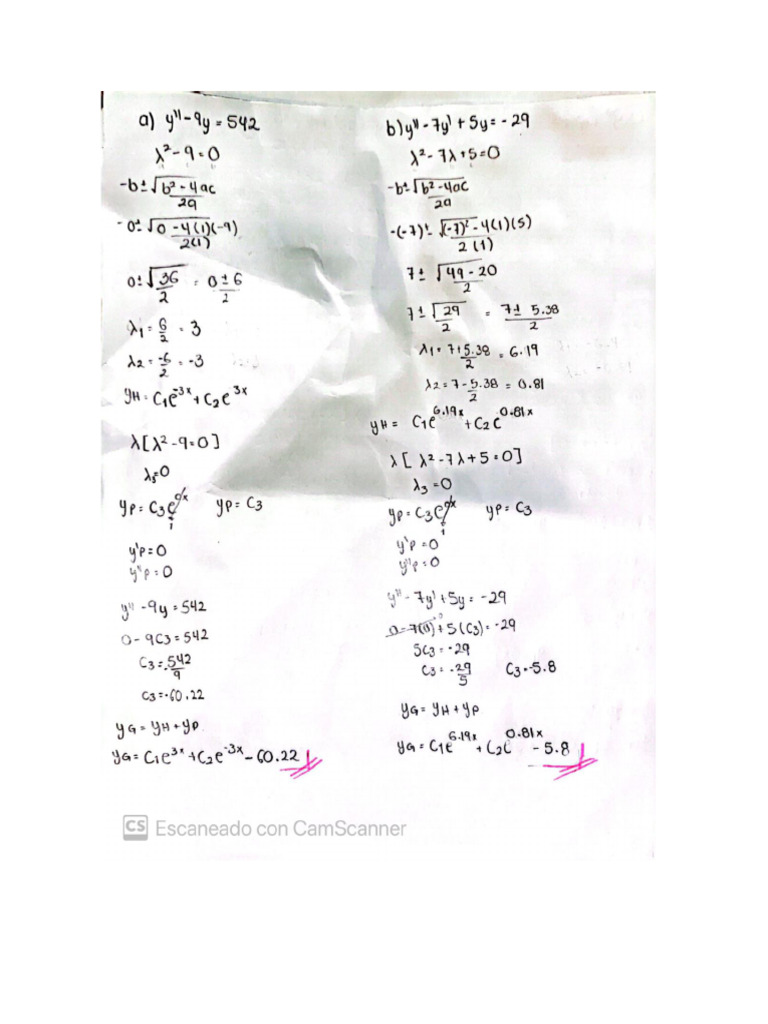 a) y'' - 9y = 542
λ² - 9 = 0
-b ± √b² - 4ac
2a
-0 ± √0 - 4(1)(-9)
2(1)
0 ± √36 = 0 ± 6
2 2
λ1 = 6 = 3
2
λ2 = -6 = -3
2
yH = C1e^-3x + C2e^3x
λ[λ² - 9 = 0]
λ3 = 0
yp = C3e^0x yp = C3
1
y'p = 0
y''p = 0
y'' - 9y = 542
0 - 9C3 = 542
C3 = -542
9
C3 = -60.22
yG = yH + yp
yG = C1e^3x + C2e^-3x - 60.22
b) y'' - 7y' + 5y = -29
λ² - 7λ + 5 = 0
-b ± √b² - 4ac
2a
-(-7) ± √(-7)² - 4(1)(5)
2(1)
7 ± √49 - 20
2
7 ± √29 = 7 ± 5.38
2 2
λ1 = 7 + 5.38 = 6.19
2
λ2 = 7 - 5.38 = 0.81
2
yH = C1e^6.19x + C2e^0.81x
λ[λ² - 7λ + 5 = 0]
λ3 = 0
yp = C3e^0x yp = C3
1
y'p = 0
y''p = 0
y'' - 7y' + 5y = -29
0 - 7(0) + 5(C3) = -29
5C3 = -29
C3 = -29 C3 = -5.8
5
yG = yH + yp
yG = C1e^6.19x + C2e^0.81x - 5.8
CS Escaneado con CamScanner